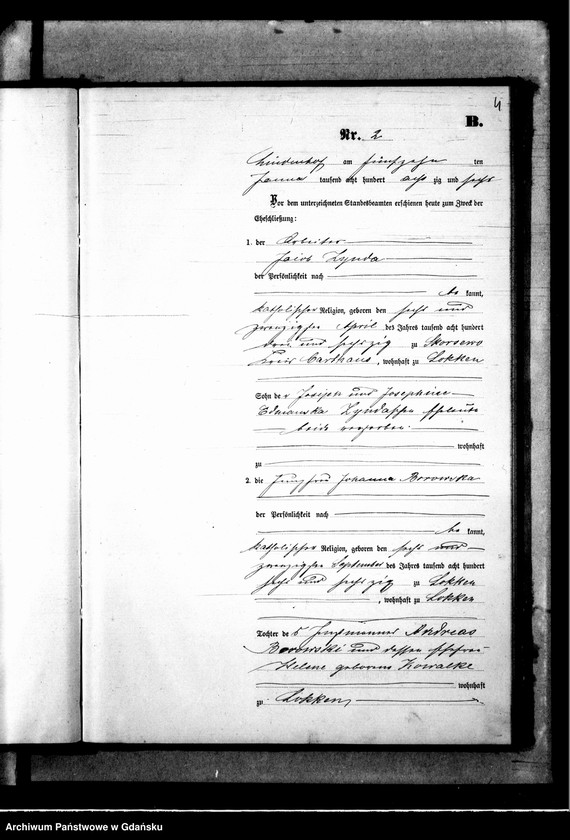 4
B.
Nr. 2
Lindenhof am fünfzehn ten
Januar tausend acht hundert acht zig und sechs
Vor dem unterzeichneten Standesbeamten erschienen heute zum Zweck der
Eheschließung:
1. der Arbeiter
Jacob Zynda
der Persönlichkeit nach
be kannt,
katholischer Religion, geboren den sechs und
zwanzigsten April des Jahres tausend acht hundert
drei und sechszig zu Skorsewo
Kreis Carthaus, wohnhaft zu Lokken
Sohn der Josef und Josephine
Zyndaschen Eheleute
beide verstorben
wohnhaft
zu
2. die Jungfrau Johanna Borowska
der Persönlichkeit nach
be kannt,
katholischer Religion, geboren den sechs und
zwanzigsten September des Jahres tausend acht hundert
sechs und sechszig zu Lokken
, wohnhaft zu Lokken
Tochter des Andreas
Borowski und dessen Ehefrau
Helene geborene Kowalke
wohnhaft
zu Lokken
Archiwum Państwowe w Gdańsku